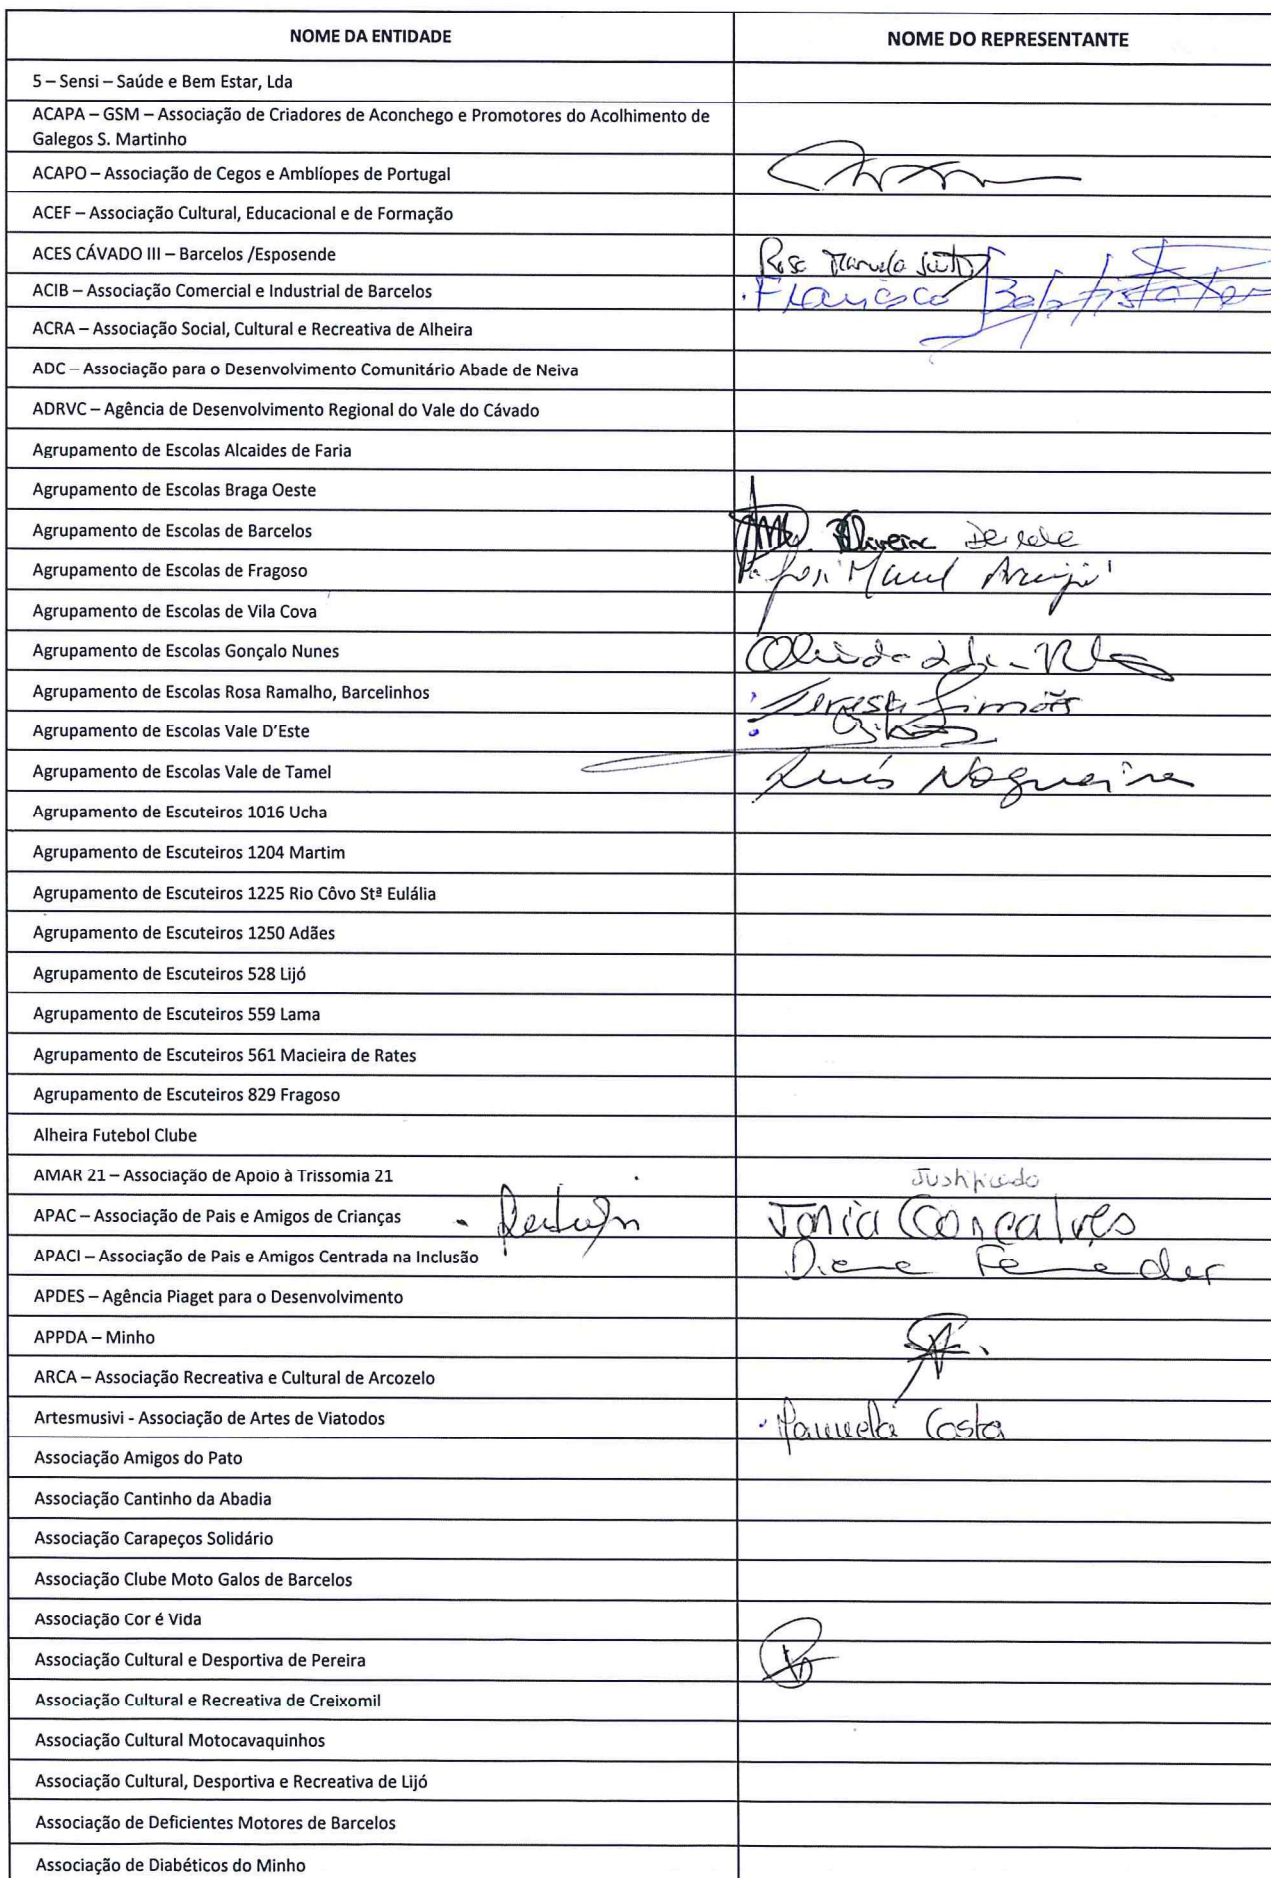 NOME DA ENTIDADE NOME DO REPRESENTANTE
5 – Sensi – Saúde e Bem Estar, Lda
ACAPA – GSM – Associação de Criadores de Aconchego e Promotores do Acolhimento de
Galegos S. Martinho
ACAPO – Associação de Cegos e Amblíopes de Portugal
ACEF – Associação Cultural, Educacional e de Formação
ACES CÁVADO III – Barcelos /Esposende Rosa Manuela
ACIB – Associação Comercial e Industrial de Barcelos Francisco Baptista
ACRA – Associação Social, Cultural e Recreativa de Alheira
ADC – Associação para o Desenvolvimento Comunitário Abade de Neiva
ADRVC – Agência de Desenvolvimento Regional do Vale do Cávado
Agrupamento de Escolas Alcaides de Faria
Agrupamento de Escolas Braga Oeste
Agrupamento de Escolas de Barcelos Oliveira
Agrupamento de Escolas de Fragoso José Manuel Araújo
Agrupamento de Escolas de Vila Cova
Agrupamento de Escolas Gonçalo Nunes
Agrupamento de Escolas Rosa Ramalho, Barcelinhos Teresa Simões
Agrupamento de Escolas Vale D'Este
Agrupamento de Escolas Vale de Tamel Luís Nogueira
Agrupamento de Escuteiros 1016 Ucha
Agrupamento de Escuteiros 1204 Martim
Agrupamento de Escuteiros 1225 Rio Côvo Stª Eulália
Agrupamento de Escuteiros 1250 Adães
Agrupamento de Escuteiros 528 Lijó
Agrupamento de Escuteiros 559 Lama
Agrupamento de Escuteiros 561 Macieira de Rates
Agrupamento de Escuteiros 829 Fragoso
Alheira Futebol Clube
AMAR 21 – Associação de Apoio à Trissomia 21 Justificado
APAC – Associação de Pais e Amigos de Crianças Tânia Gonçalves
APACI – Associação de Pais e Amigos Centrada na Inclusão Diana Fernandes
APDES – Agência Piaget para o Desenvolvimento
APPDA – Minho
ARCA – Associação Recreativa e Cultural de Arcozelo
Artesmusivi - Associação de Artes de Viatodos Manuela Costa
Associação Amigos do Pato
Associação Cantinho da Abadia
Associação Carapeços Solidário
Associação Clube Moto Galos de Barcelos
Associação Cor é Vida
Associação Cultural e Desportiva de Pereira
Associação Cultural e Recreativa de Creixomil
Associação Cultural Motocavaquinhos
Associação Cultural, Desportiva e Recreativa de Lijó
Associação de Deficientes Motores de Barcelos
Associação de Diabéticos do Minho